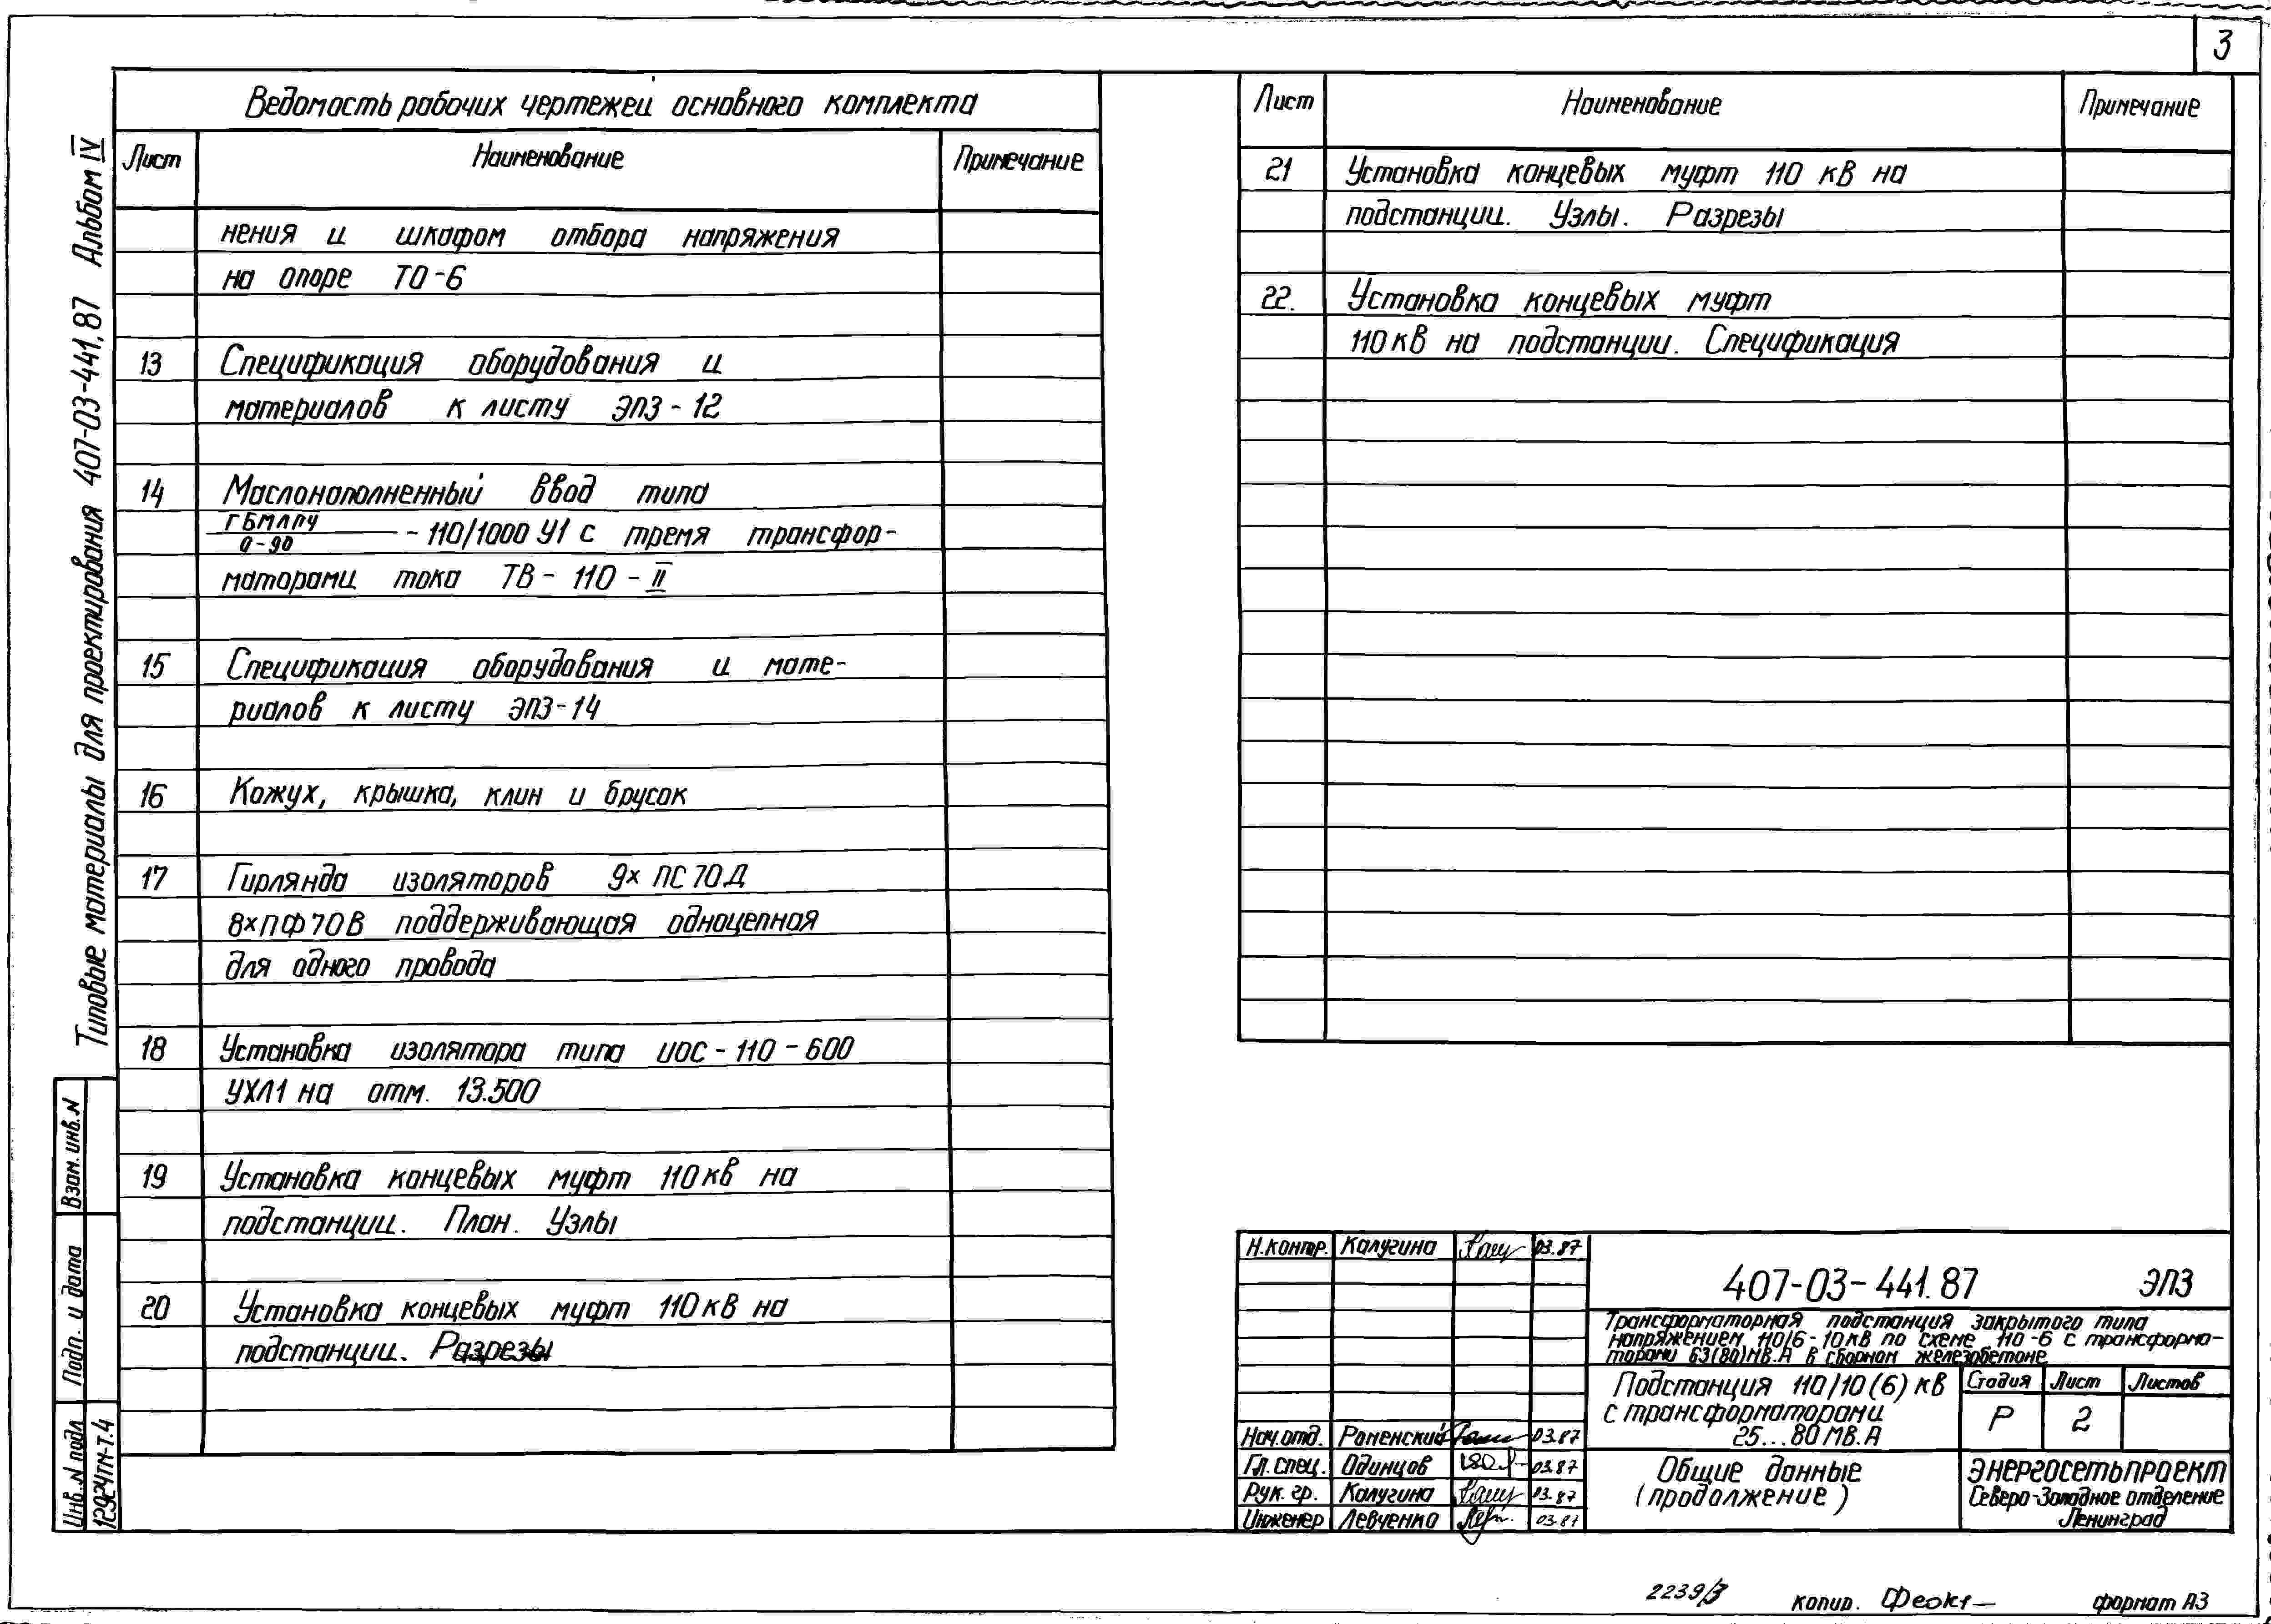 3
Типовые материалы для проектирования 407-03-441.87 Альбом IV
Ведомость рабочих чертежей основного комплекта
Лист Наименование Примечание
нения и шкафом отбора напряжения
на опоре ТО-6
13 Спецификация оборудования и
материалов к листу ЭПЗ-12
14 Маслонаполненный ввод типа
ГБМЛПУ
0-90
-110/1000 У1 с тремя трансфор-
маторами тока ТВ-110-II
15 Спецификация оборудования и мате-
риалов к листу ЭПЗ-14
16 Кожух, крышка, клин и брусок
17 Гирлянда изоляторов 9х ПС70Д
8хПФ70В поддерживающая одноцепная
для одного провода
18 Установка изолятора типа ИОС-110-600
УХЛ1 на отм. 13.500
19 Установка концевых муфт 110кв на
подстанции. План. Узлы
20 Установка концевых муфт 110кВ на
подстанции. Разрезы
Лист Наименование Примечание
21 Установка концевых муфт 110 кВ на
подстанции. Узлы. Разрезы
22. Установка концевых муфт
110кВ на подстанции. Спецификация
Взам. инв. N
Подп. и дата
Инв. N подл
12924тм-т.4
Н.контр. Калугина 03.87
Нач.отд. Роменский 03.87
Гл. спец. Одинцов 03.87
Рук. гр. Калугина 03.87
Инженер Левченко 03.87
407-03-441.87 ЭПЗ
Трансформаторная подстанция закрытого типа
напряжением 110/6-10кВ по схеме 110-6 с трансформа-
торами 63(80)МВ.А в сборном железобетоне
Подстанция 110/10(6) кВ
с трансформаторами
25...80 МВ.А
Стадия Лист Листов
Р 2
Общие данные
(продолжение)
Энергосетьпроект
Северо-Западное отделение
Ленинград
2239/3 копир. формат А3